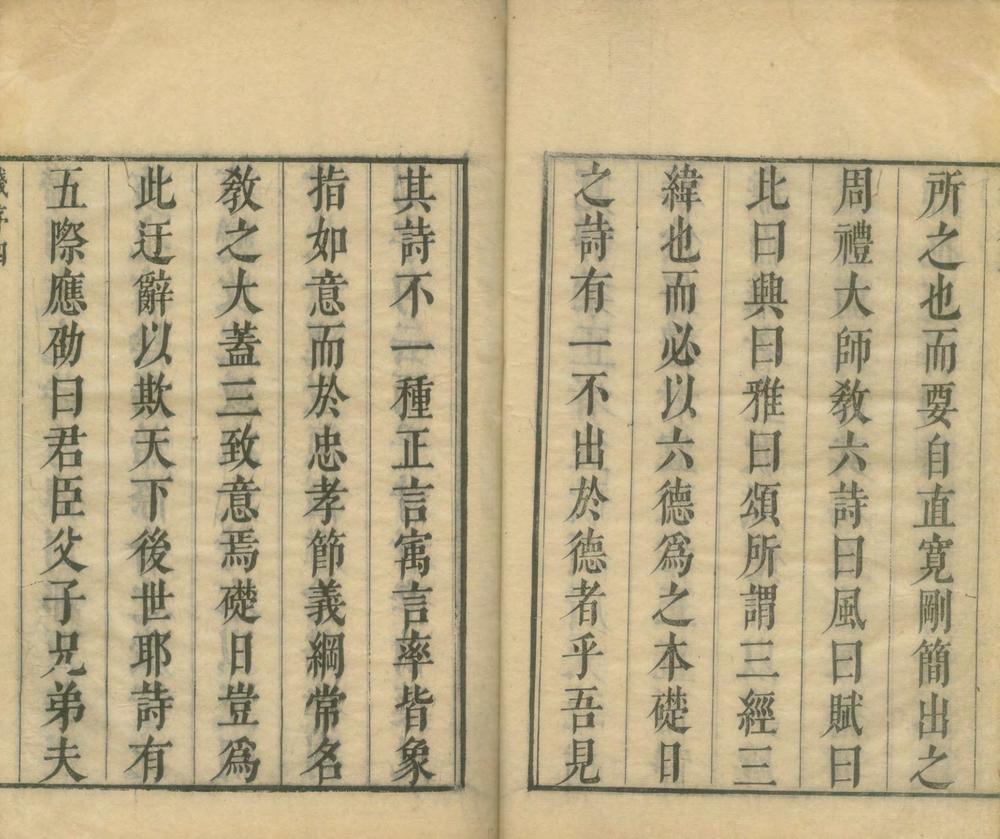 所之也而要自直寛剛簡出之
周禮大師敎六詩曰風曰賦曰
比曰興曰雅曰頌所謂三經三
緯也而必以六德爲之本礎日
之詩有一不出於德者乎吾見
其詩不一種正言寓言率皆象
指如意而於忠孝節義綱常名
敎之大蓋三致意焉礎日豈爲
此迂辭以欺天下後世耶詩有
五際應劭曰君臣父子兄弟夫